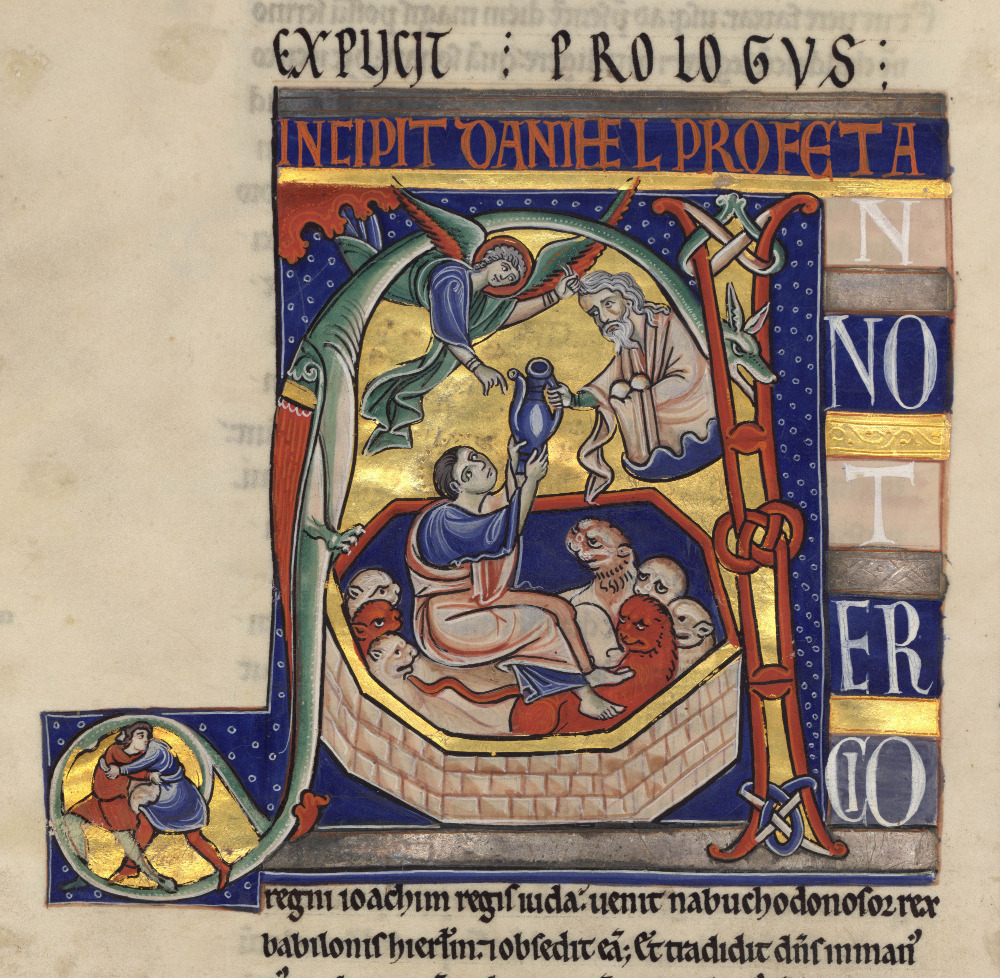 EXPLICIT : PROLOGVS :
INCIPIT DANIHEL PROFETA
A
N
NO
T
ER
CIO
regni ioachim regis iuda: uenit nabuchodonosor rex
babilonis hierl̅m ⁊ obsedit ea̅; Et tradidit dn̅s in manu